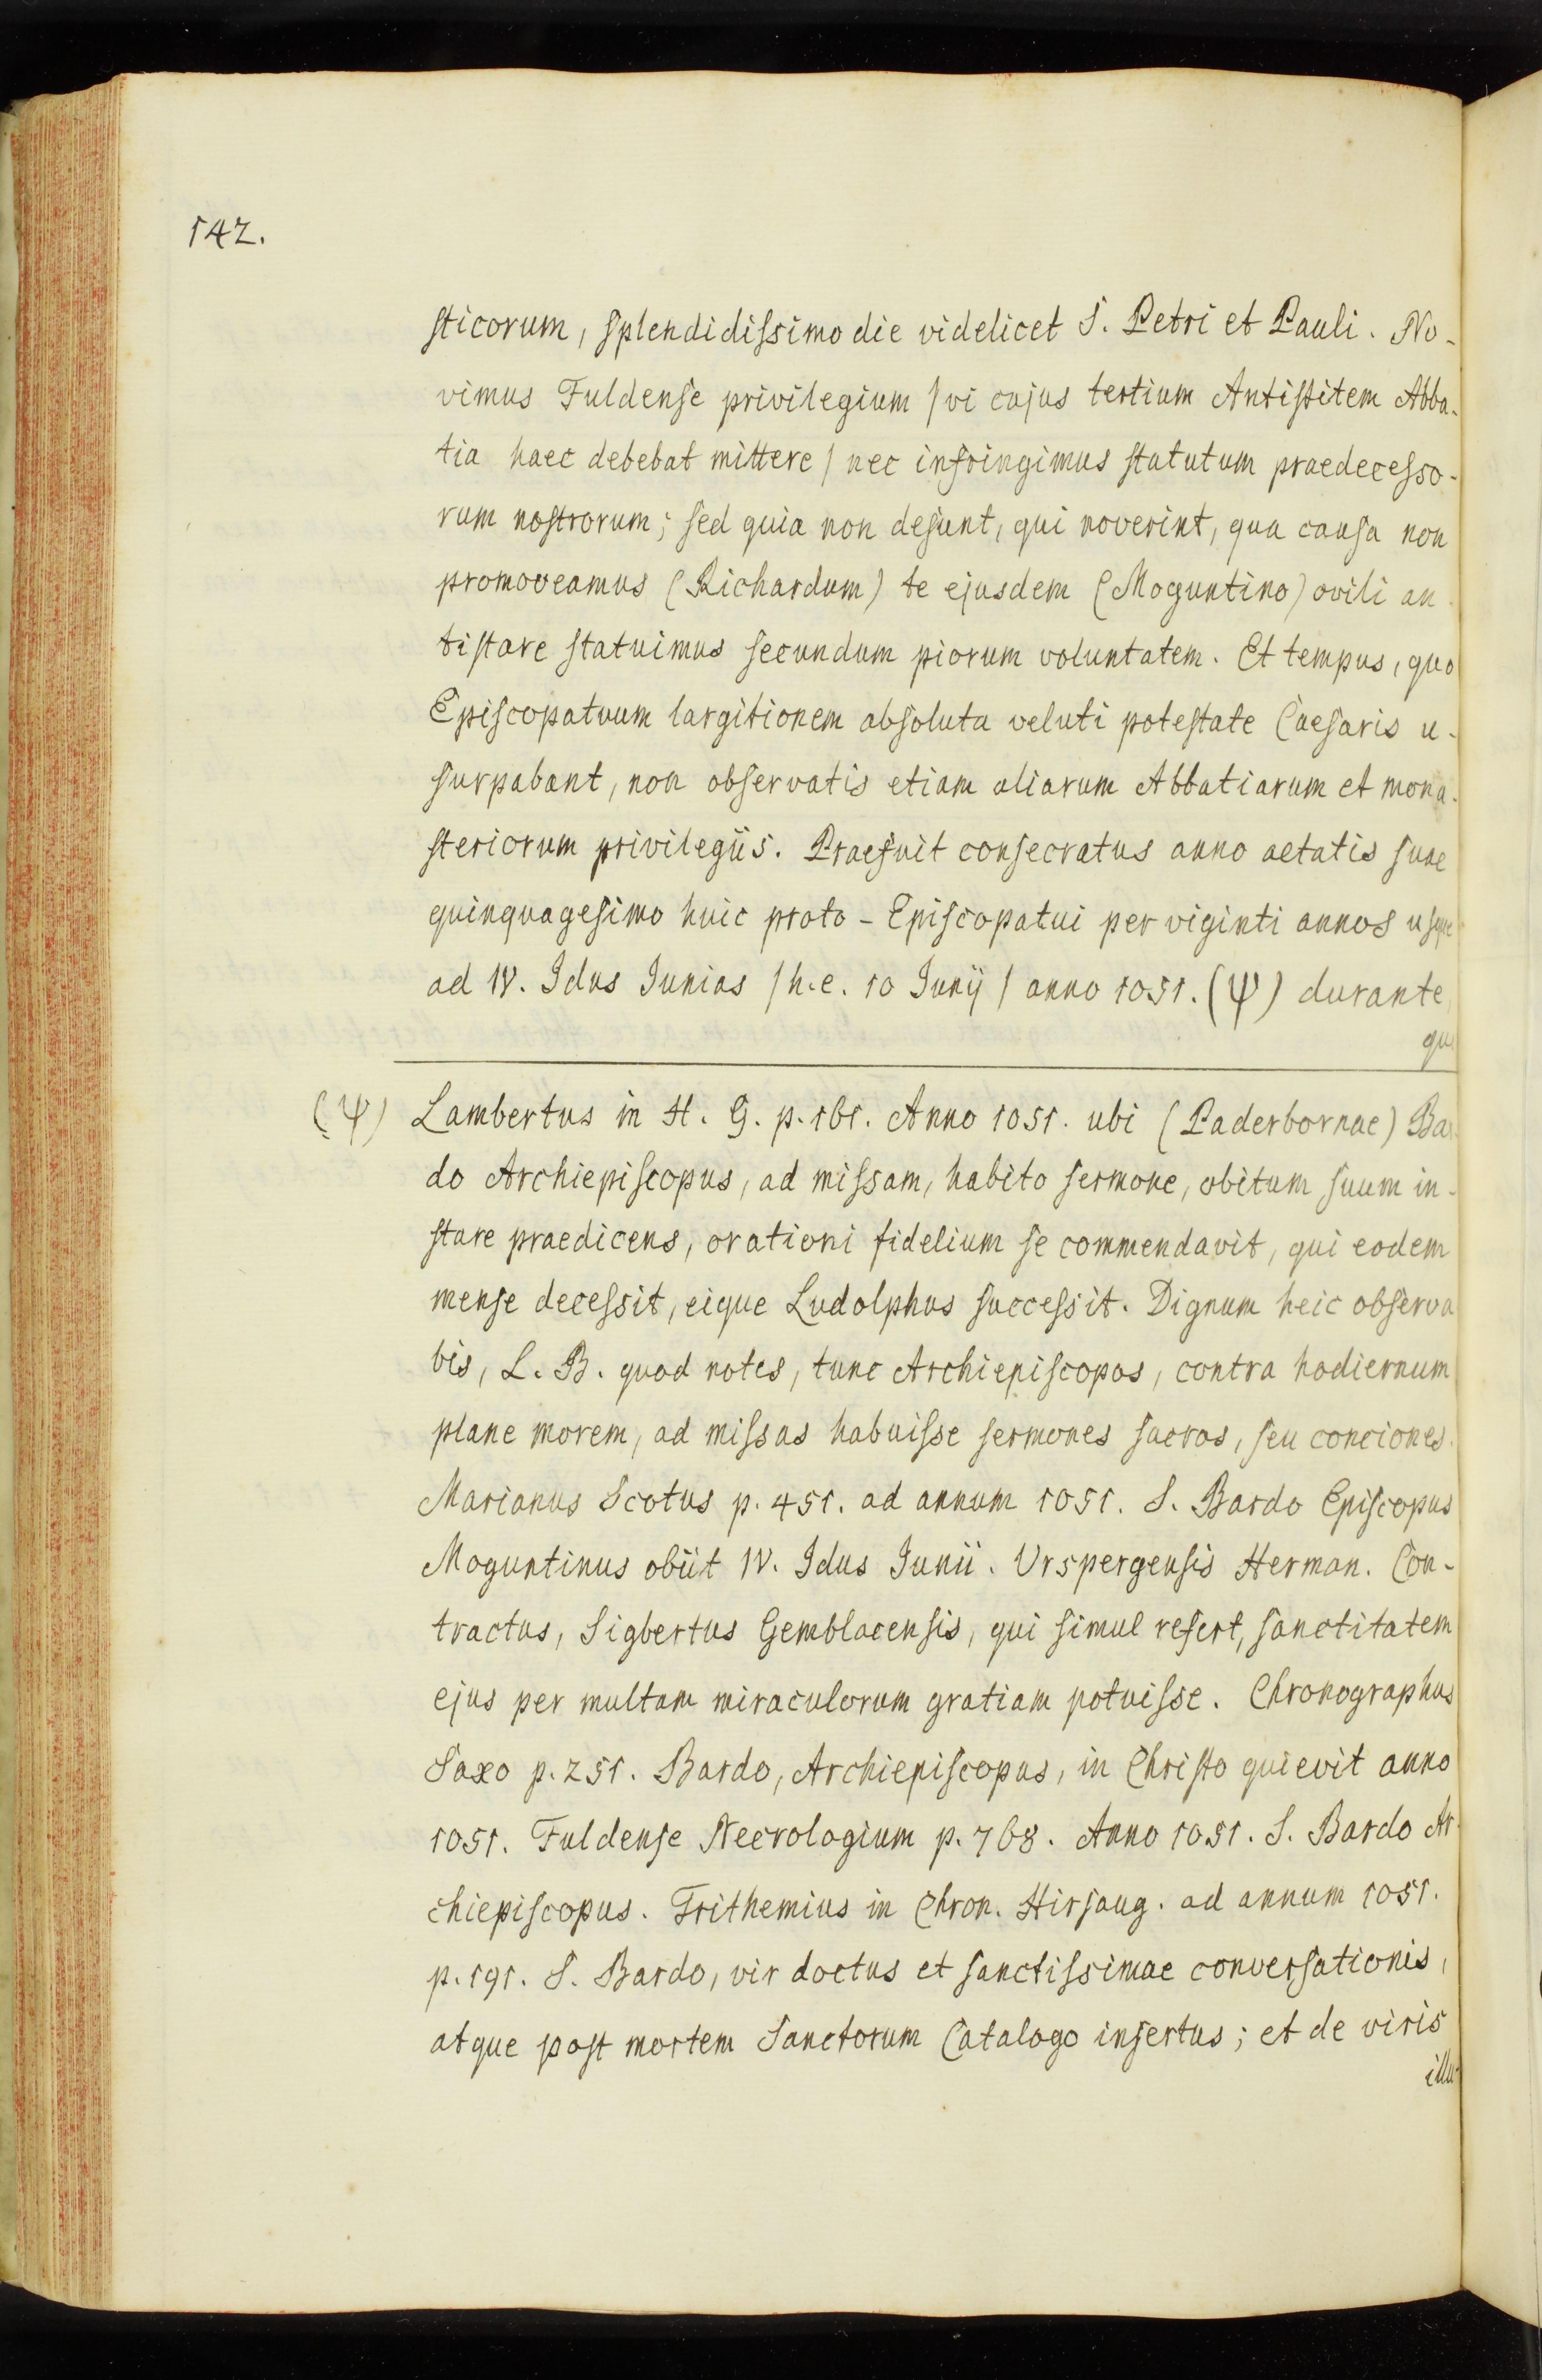 142.
sticorum, splendidissimo die videlicet S. Petri et Pauli. No-
vimus Fuldense privilegium / vi cujus tertium Antistitem Abba-
tia haec debebat mittere / nec infringimus statutum praedecesso-
rum nostrorum; sed quia non desunt, qui noverint, qua causa non
promoveamus (Richardum) te ejusdem (Moguntino) ovili an
tistare statuimus secundum piorum voluntatem. Et tempus, quo
Episcopatuum largitionem absoluta veluti potestate Caesaris u-
surpabant, non observatis etiam aliarum Abbatiarum et mona-
steriorum privilegiis. Praefuit consecratus anno aetatis suae
quinquagesimo huic proto-Episcopatui per viginti annos usque
ad IV. Idus Junias / h.e. 10 Junij / anno 1051. (Ψ) durante
qu
(Ψ) Lambertus in H. G. p. 161. Anno 1051. ubi (Paderbornae) Bar
do Archiepiscopus, ad missam, habito sermone, obitum suum in-
stare praedicens, orationi fidelium se commendavit, qui eodem
mense decessit, eique Ludolphus successit. Dignum heic observa
bis, L. B. quod notes, tunc Archiepiscopos, contra hodiernum
plane morem, ad missas habuisse sermones sacros, seu conciones.
Marianus Scotus p. 451. ad annum 1051. S. Bardo Episcopus
Moguntinus obiit IV. Idus Junii. Urspergensis Herman. Con-
tractus, Sigbertus Gemblacensis, qui simul refert, sanctitatem
ejus per multam miraculorum gratiam potuisse. Chronographus
Saxo p. 251. Bardo, Archiepiscopus, in Christo quievit anno
1051. Fuldense Necrologium p. 768. Anno 1051. S. Bardo Ar
chiepiscopus. Trithemius in Chron. Hirsaug. ad annum 1051.
p. 191. S. Bardo, vir doctus et sanctissimae conversationis,
atque post mortem Sanctorum Catalogo insertus; et de viris
illu-